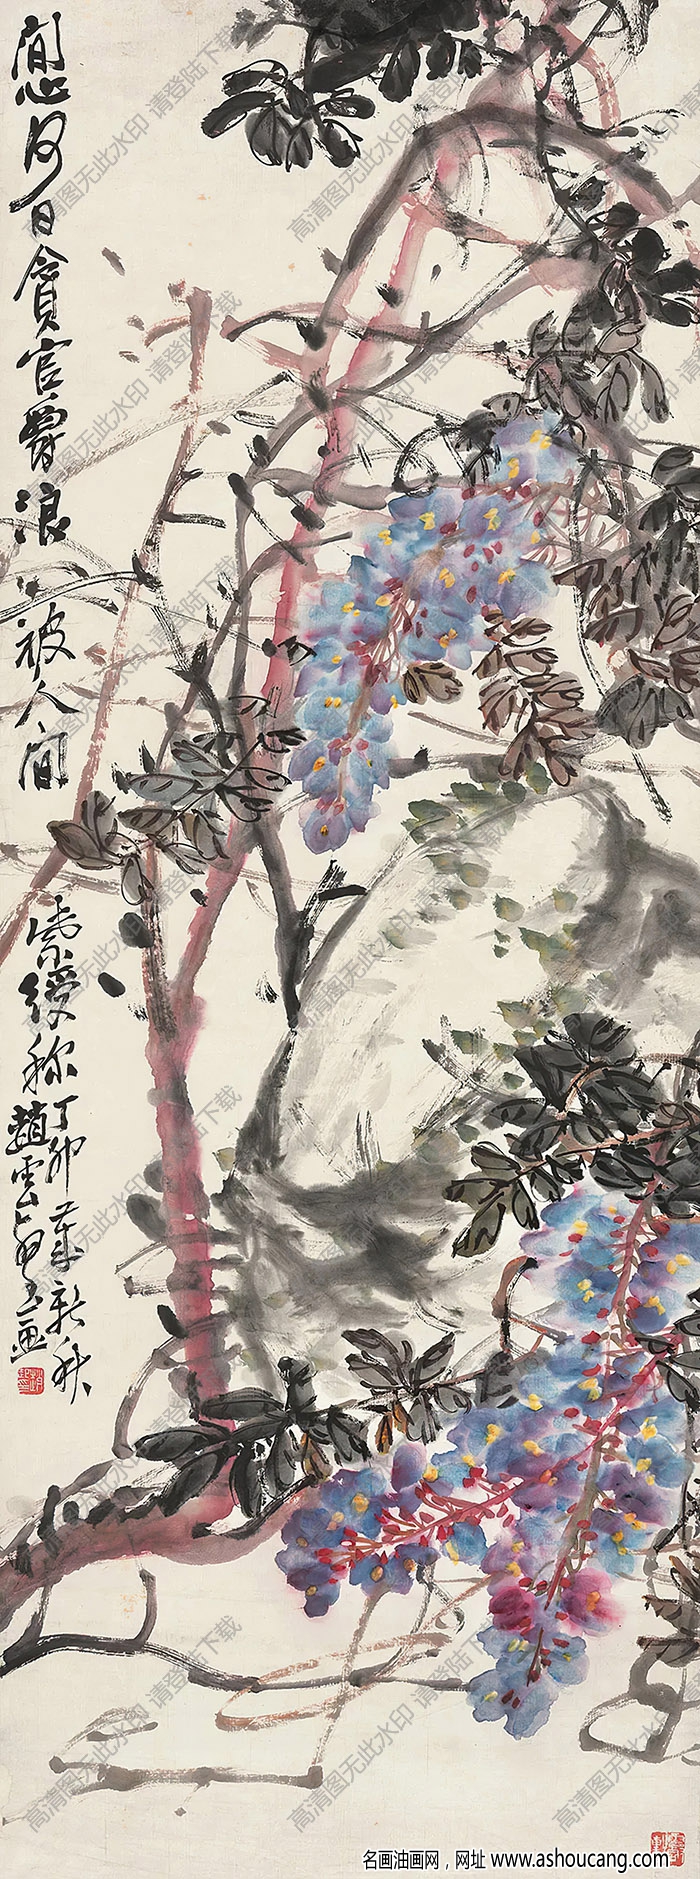 閒心何日貪官爵浪被人間
紫綬称
丁卯歲新秋
趙雲壑画
高清图无此水印 请登陆下载
名画油画网，网址 www.ashoucang.com